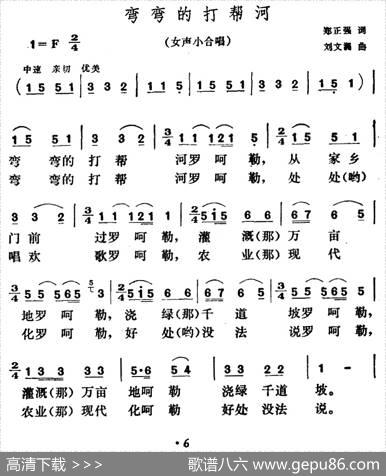 弯弯的打帮河
1=F 2/4
(女声小合唱)
郑正强 词
刘文 曲
中速 亲切 优美
(1 5 51 | 3 3 2 | 1 5 51 | 3 3 2 |
1 5 51 | 3 3 2 | 3/4 1 1 1121 5 | 2/4 1 5 5 1 |
弯 弯的 打 帮 河罗 呵 勒, 从 家 乡
弯 弯的 打 帮 河罗 呵 勒, 处 处(哟)
3 3 2 | 3/4 1 1 1121 | 2/4 5i5 6 | 6 7 6 5 |
门 前 过罗 呵勒, 灌 溉(那)万 亩
唱 欢 歌罗 呵勒, 农 业(那)现 代
3/4 5 5 5 565 3 | 2/4 5i5 6 | 6 7 6 5 | 3/4 5 5 5 565 |
地罗 呵 勒, 浇 绿(那)千 道 坡罗 呵勒,
化罗 呵 勒, 好 处(哟)没 法 说罗 呵勒,
2/4 1 3 3 3 | 5·6 5 | 5 4 3 3 2 | 1 - |
灌溉(那)万亩 地呵 勒 浇绿 千道 坡。
农业(那)现代 化呵 勒 好处 没法 说。
·6
高清下载 >>> 歌谱八六 www.gepu86.com